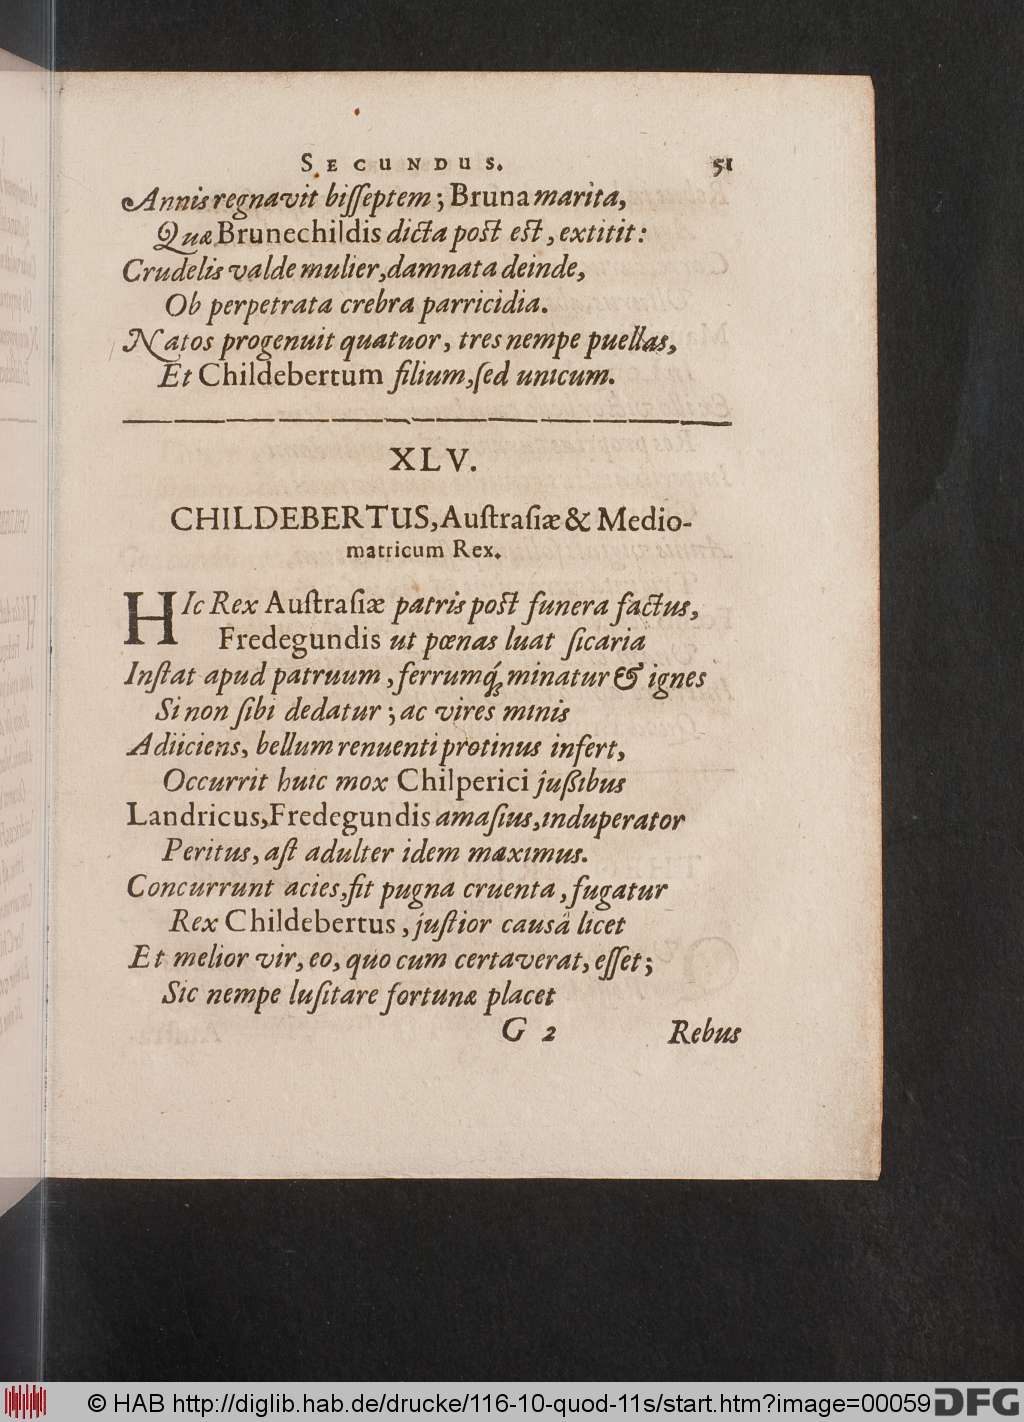 SECUNDUS. 51
Annis regnavit bisſeptem; Bruna marita,
Quæ Brunechildis dicta poſt eſt, extitit:
Crudelis valde mulier, damnata deinde,
Ob perpetrata crebra parricidia.
Natos progenuit quatuor, tres nempe puellas,
Et Childebertum filium, ſed unicum.
XLV.
CHILDEBERTUS, Auſtraſiæ & Medio-
matricum Rex.
HIc Rex Auſtraſiæ patris poſt funera factus,
Fredegundis ut pœnas luat ſicaria
Inſtat apud patruum, ferrumq́; minatur & ignes
Si non ſibi dedatur; ac vires minis
Adiiciens, bellum renuenti protinus infert,
Occurrit huic mox Chilperici juſsibus
Landricus, Fredegundis amaſius, induperator
Peritus, aſt adulter idem maximus.
Concurrunt acies, fit pugna cruenta, fugatur
Rex Childebertus, juſtior causâ licet
Et melior vir, eo, quo cum certaverat, eſſet;
Sic nempe luſitare fortunæ placet
G 2 Rebus
© HAB http://diglib.hab.de/drucke/116-10-quod-11s/start.htm?image=00059 DFG